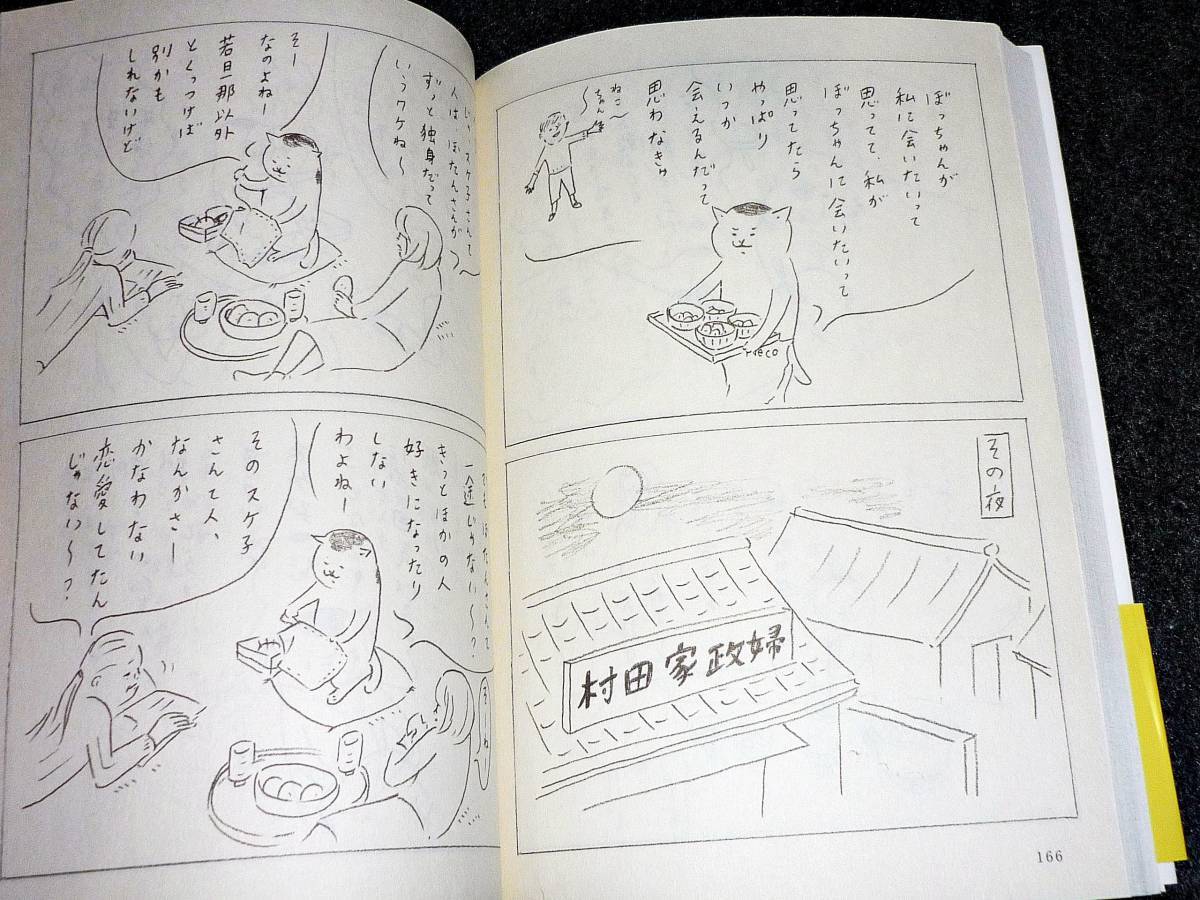 ぼっちゃんが
私に会いたいって
思ってて、私が
ぼっちゃんに会いたいって
思ってたら
やっぱり
いつか
会えるんだって
思わなきゃ
ねこ〜
ちゃん
その夜
村田家政婦
166
じゃ、スケ子さんて
人は ぼたんさんが
ずっと独身だって
いうワケね〜
そー
なのよねー
若旦那以外
とくっつけば
別かも
しれないけど
ぼたんさんて
一途じゃない〜?
きっとほかの人
好きになったり
しない
わよねー
そーね
そのスケ子
さんて人、
なんかさー
かなわない
恋愛してたん
じゃない〜?